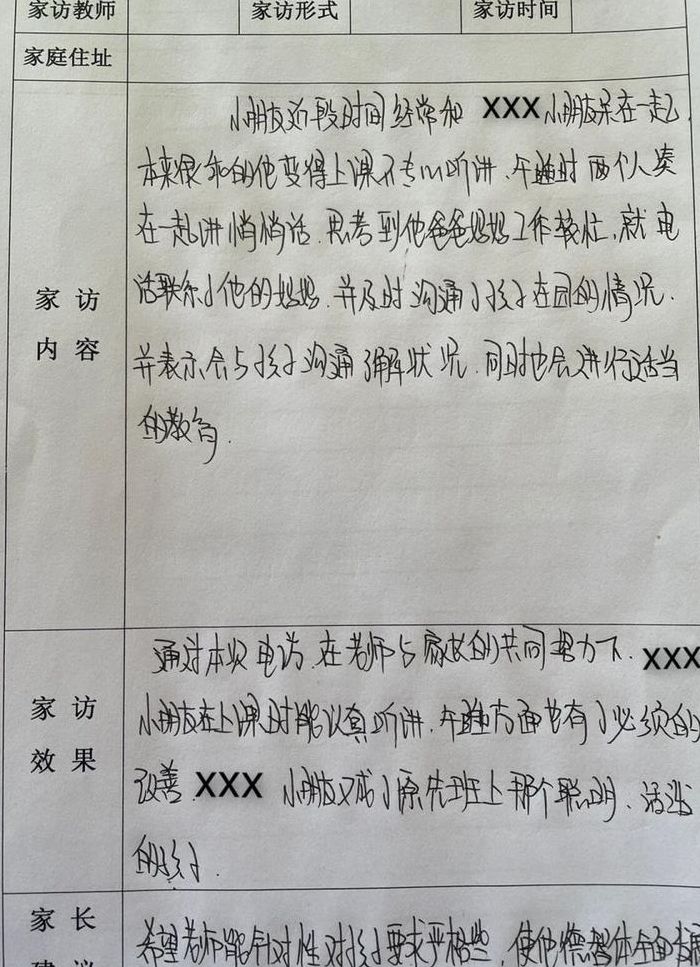 家访教师 家访形式 家访时间
家庭住址
家访内容
小朋友近段时间经常和 XXX 小朋友呆在一起,
本来很乖的他变得上课不专心听讲,午睡时两个人凑
在一起讲悄悄话.思考到他爸爸妈妈工作较忙,就电
话联系了他的妈妈.并及时沟通了孩子在园的情况.
并表示会与孩子沟通了解状况.同时也会进行适当
的教育.
家访效果
通过本次电访 在老师与家长的共同努力下. XXX
小朋友在上课时能认真听讲.午睡方面也有了必须的
改善.XXX 小朋友又成了原先班上那个聪明、活泼
的孩子.
家长建议
希望老师能针对性对孩子要求严格些,使他德智体全面